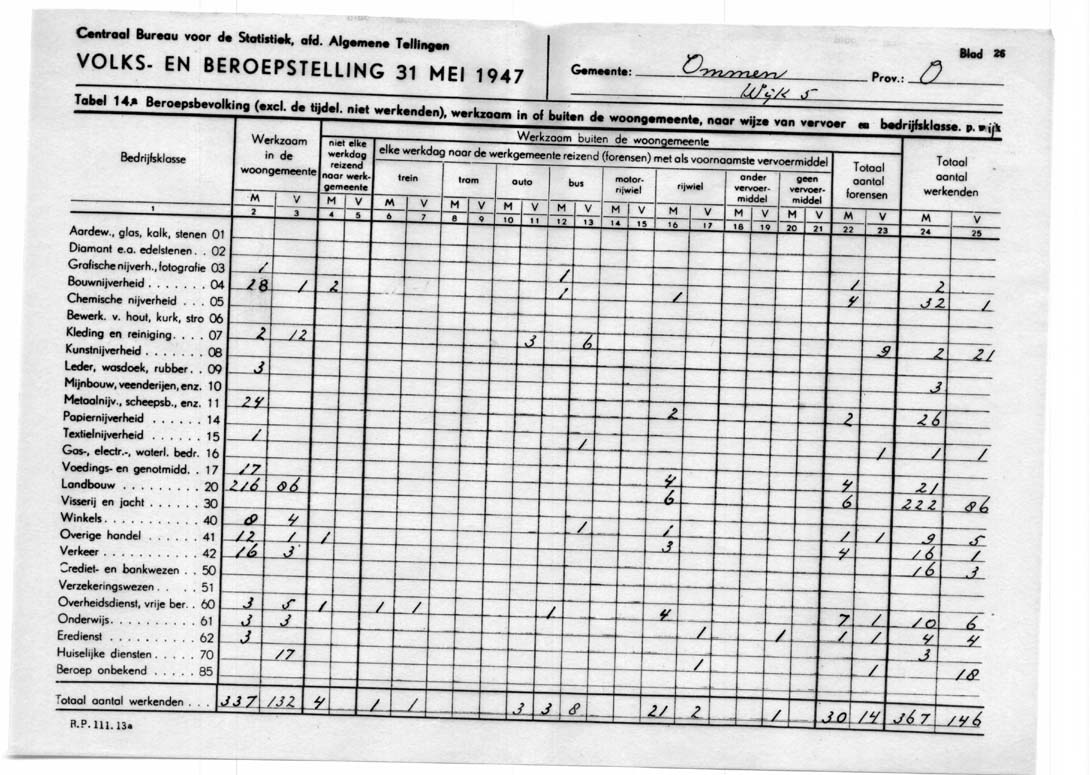 Centraal Bureau voor de Statistiek, afd. Algemene Tellingen
VOLKS- EN BEROEPSTELLING 31 MEI 1947
Gemeente: Ommen Prov.: O
Wijk 5
Blad 26
Tabel 14.a Beroepsbevolking (excl. de tijdel. niet werkenden), werkzaam in of buiten de woongemeente, naar wijze van vervoer en bedrijfsklasse. p. wijk
Bedrijfsklasse
Werkzaam in de woongemeente
Werkzaam buiten de woongemeente
niet elke werkdag reizend naar werk-gemeente
elke werkdag naar de werkgemeente reizend (forensen) met als voornaamste vervoermiddel
trein tram auto bus motor-rijwiel rijwiel ander vervoer-middel geen vervoer-middel
Totaal aantal forensen
Totaal aantal werkenden
M V M V M V M V M V M V M V M V M V M V M V M V
1 2 3 4 5 6 7 8 9 10 11 12 13 14 15 16 17 18 19 20 21 22 23 24 25
Aardew., glas, kalk, stenen 01
Diamant e.a. edelstenen . . 02
Grafische nijverh., fotografie 03 1 1
Bouwnijverheid . . . . . . . 04 28 1 2 1 1 2
Chemische nijverheid . . . 05 1 4 32 1
Bewerk. v. hout, kurk, stro 06
Kleding en reiniging. . . . 07 2 12 3 6
Kunstnijverheid . . . . . . . 08 9 2 21
Leder, wasdoek, rubber. . 09 3
Mijnbouw, veenderijen, enz. 10 3
Metaalnijv., scheepsb., enz. 11 24 2
Papiernijverheid . . . . . . 14 2 26
Textielnijverheid . . . . . . 15 1 1
Gas-, electr.-, waterl. bedr. 16 1 1 1
Voedings- en genotmidd. . 17 17 4
Landbouw . . . . . . . . . . 20 216 86 6 4 21
Visserij en jacht . . . . . . . 30 6 222 86
Winkels . . . . . . . . . . . . 40 8 4 1 1
Overige handel . . . . . . 41 12 1 1 3 1 1 9 5
Verkeer . . . . . . . . . . . . 42 16 3 4 16 1
Crediet- en bankwezen . . 50 16 3
Verzekeringswezen . . . . 51
Overheidsdienst, vrije ber. . 60 3 5 1 1 1 1 4
Onderwijs. . . . . . . . . . . 61 3 3 7 1 10 6
Eredienst . . . . . . . . . . 62 3 1 1 1 1 4 4
Huiselijke diensten . . . . . 70 17 1 3
Beroep onbekend . . . . . 85 1 18
Totaal aantal werkenden . . . 337 132 4 1 1 3 3 8 21 2 1 30 14 367 146
R.P. 111. 13a